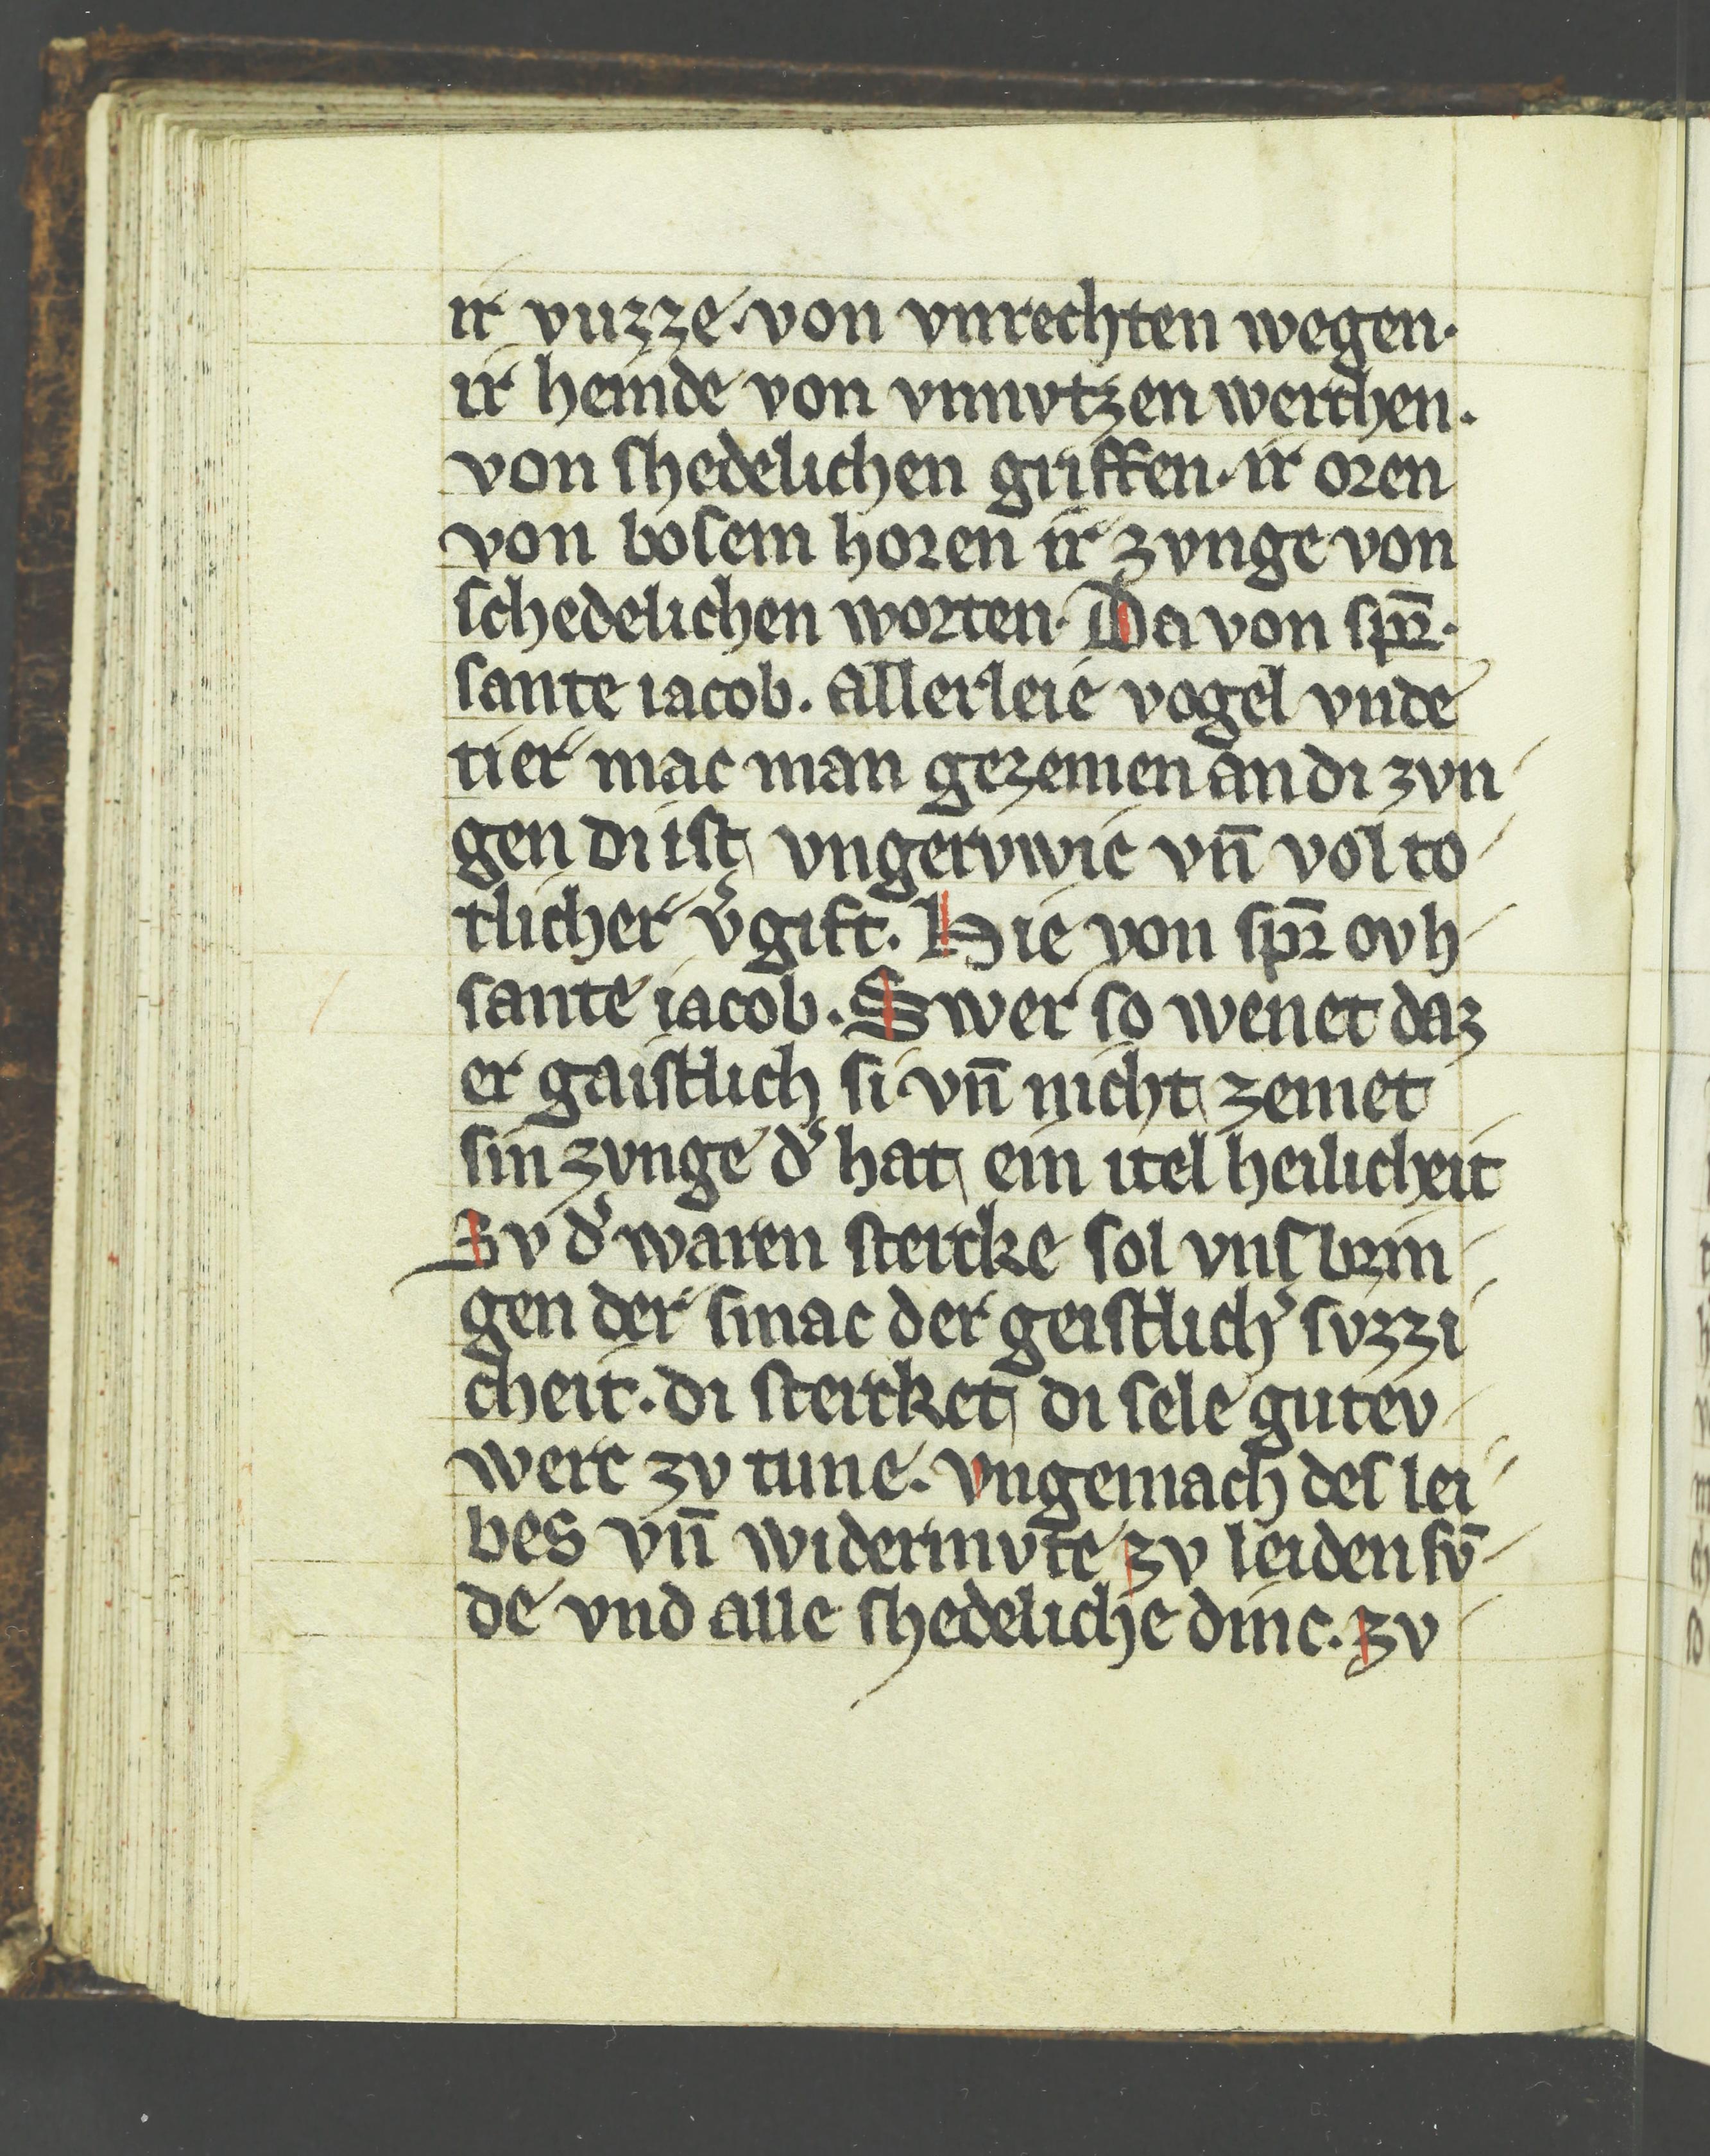 ir vuzze. von vnrechten wegen.
ir heinde von vnnvtzen werchen.
von shedelichen griffen. ir oren
von bosem horen ir zvnge von
schedelichen worten. Da von spͬr.
sante iacob. Allerleie vogel vnde
tier mac man gezemen an di zvn
gen di ist vngervwic vn̄ vol to
tlicher v͛gift. Hie von spr̄ ovh
sante iacob. Swer so wenet daz
er gaistlich si vn̄ nicht zemet
sin zvnge d͛ hat ein itel heilicheit
Zv d͛ waren stercke sol vns brin
gen der smac der geistlich͛ svzzi
cheit. di stercket di sele gutev
werc zv tune. vngemach des lei
bes vn̄ widermvte zv leiden sv̄
de vnd alle shedeliche dinc. zv